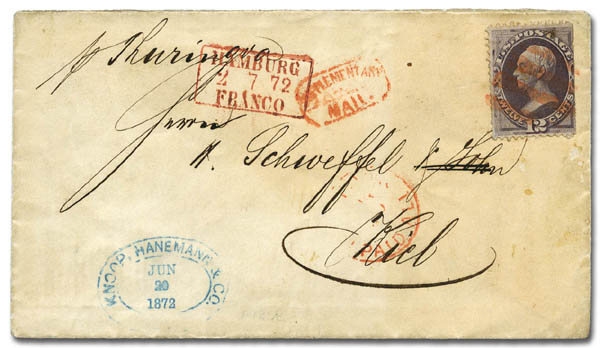 p Thuringia
HAMBURG
2 7 72
FRANCO
SUPPLEMENTARY
MAIL
U.S. POSTAGE
TWELVE 12 CENTS
Herrn
H. Schweffel & John
Kiel
PAID
KNOOP, HANEMANN & CO.
JUN
20
1872